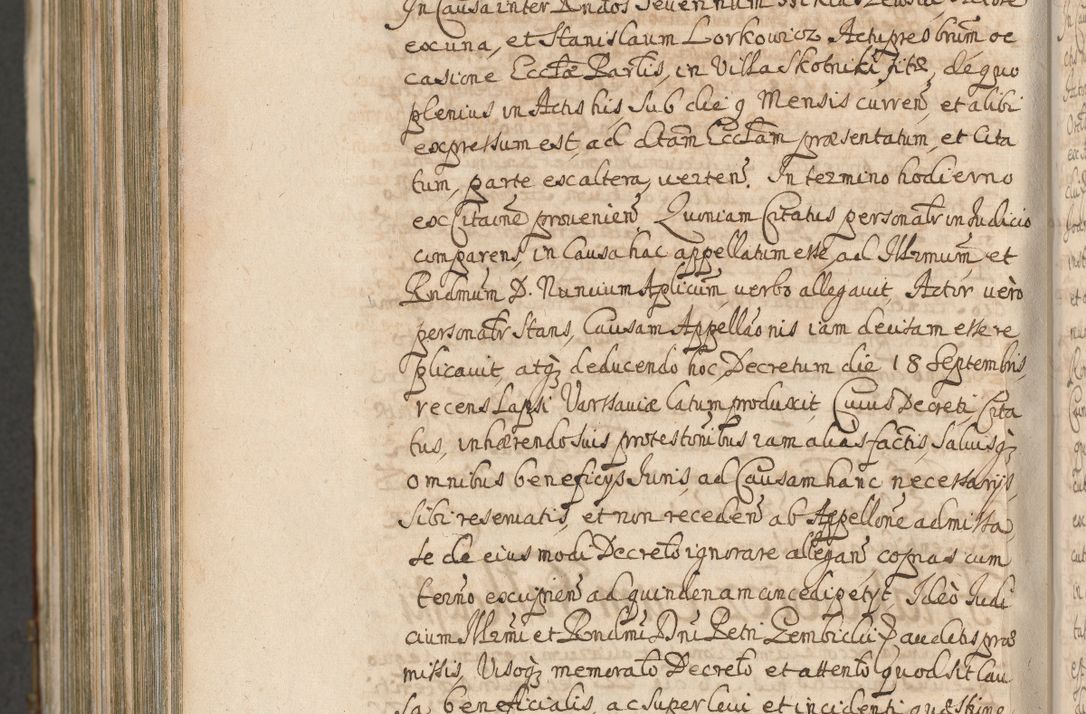 In Causa inter Rndos Severinum
ex una, et Stanislaum Lorkowicz Actu presbrum oc
casione Ecclæ Parlis, in Villa Skotniki sitæ, de quo
plenius in Actis his sub die 9 Mensis curren, et alibi
expressum est, ad dtam Ecclam præsentatum, et Cita
tum, parte ex altera, verten. In termino hodierno
ex Citaone provenien, Quoniam Citatus personalr in Judicio
comparens, in Causa hac appellatum esse, ad Illrmum et
Rndmum D. Nuncium Aplicum, verbo allegavit, Actor verò
personalr stans, Causam Appellaonis iam decisam esse re
plicavit, atq3 deducendo hoc, Decretum die 18 Septembris,
recens lapsi Varsaviæ latum produxit, Cuius Decreti, Cita
tus, inhærendo suis protestonibus iam alias factis, salvisq3
omnibus beneficijs Juris, ad Causam hanc necessarijs,
sibi reservatis, et non receden ab Appellone admissa,
se de eiusmodi Decreto ignorare allegan copias cum
termo excipien ad quindenam concedi petyt, Ideò Judi
cium Illrmi et Rndmi Dni Petri Gembicki D auditis præ
missis, Visoq3 memorato Decreto et attento quod sit Cau
sa beneficialis, ac super levi et incidenti quæstione